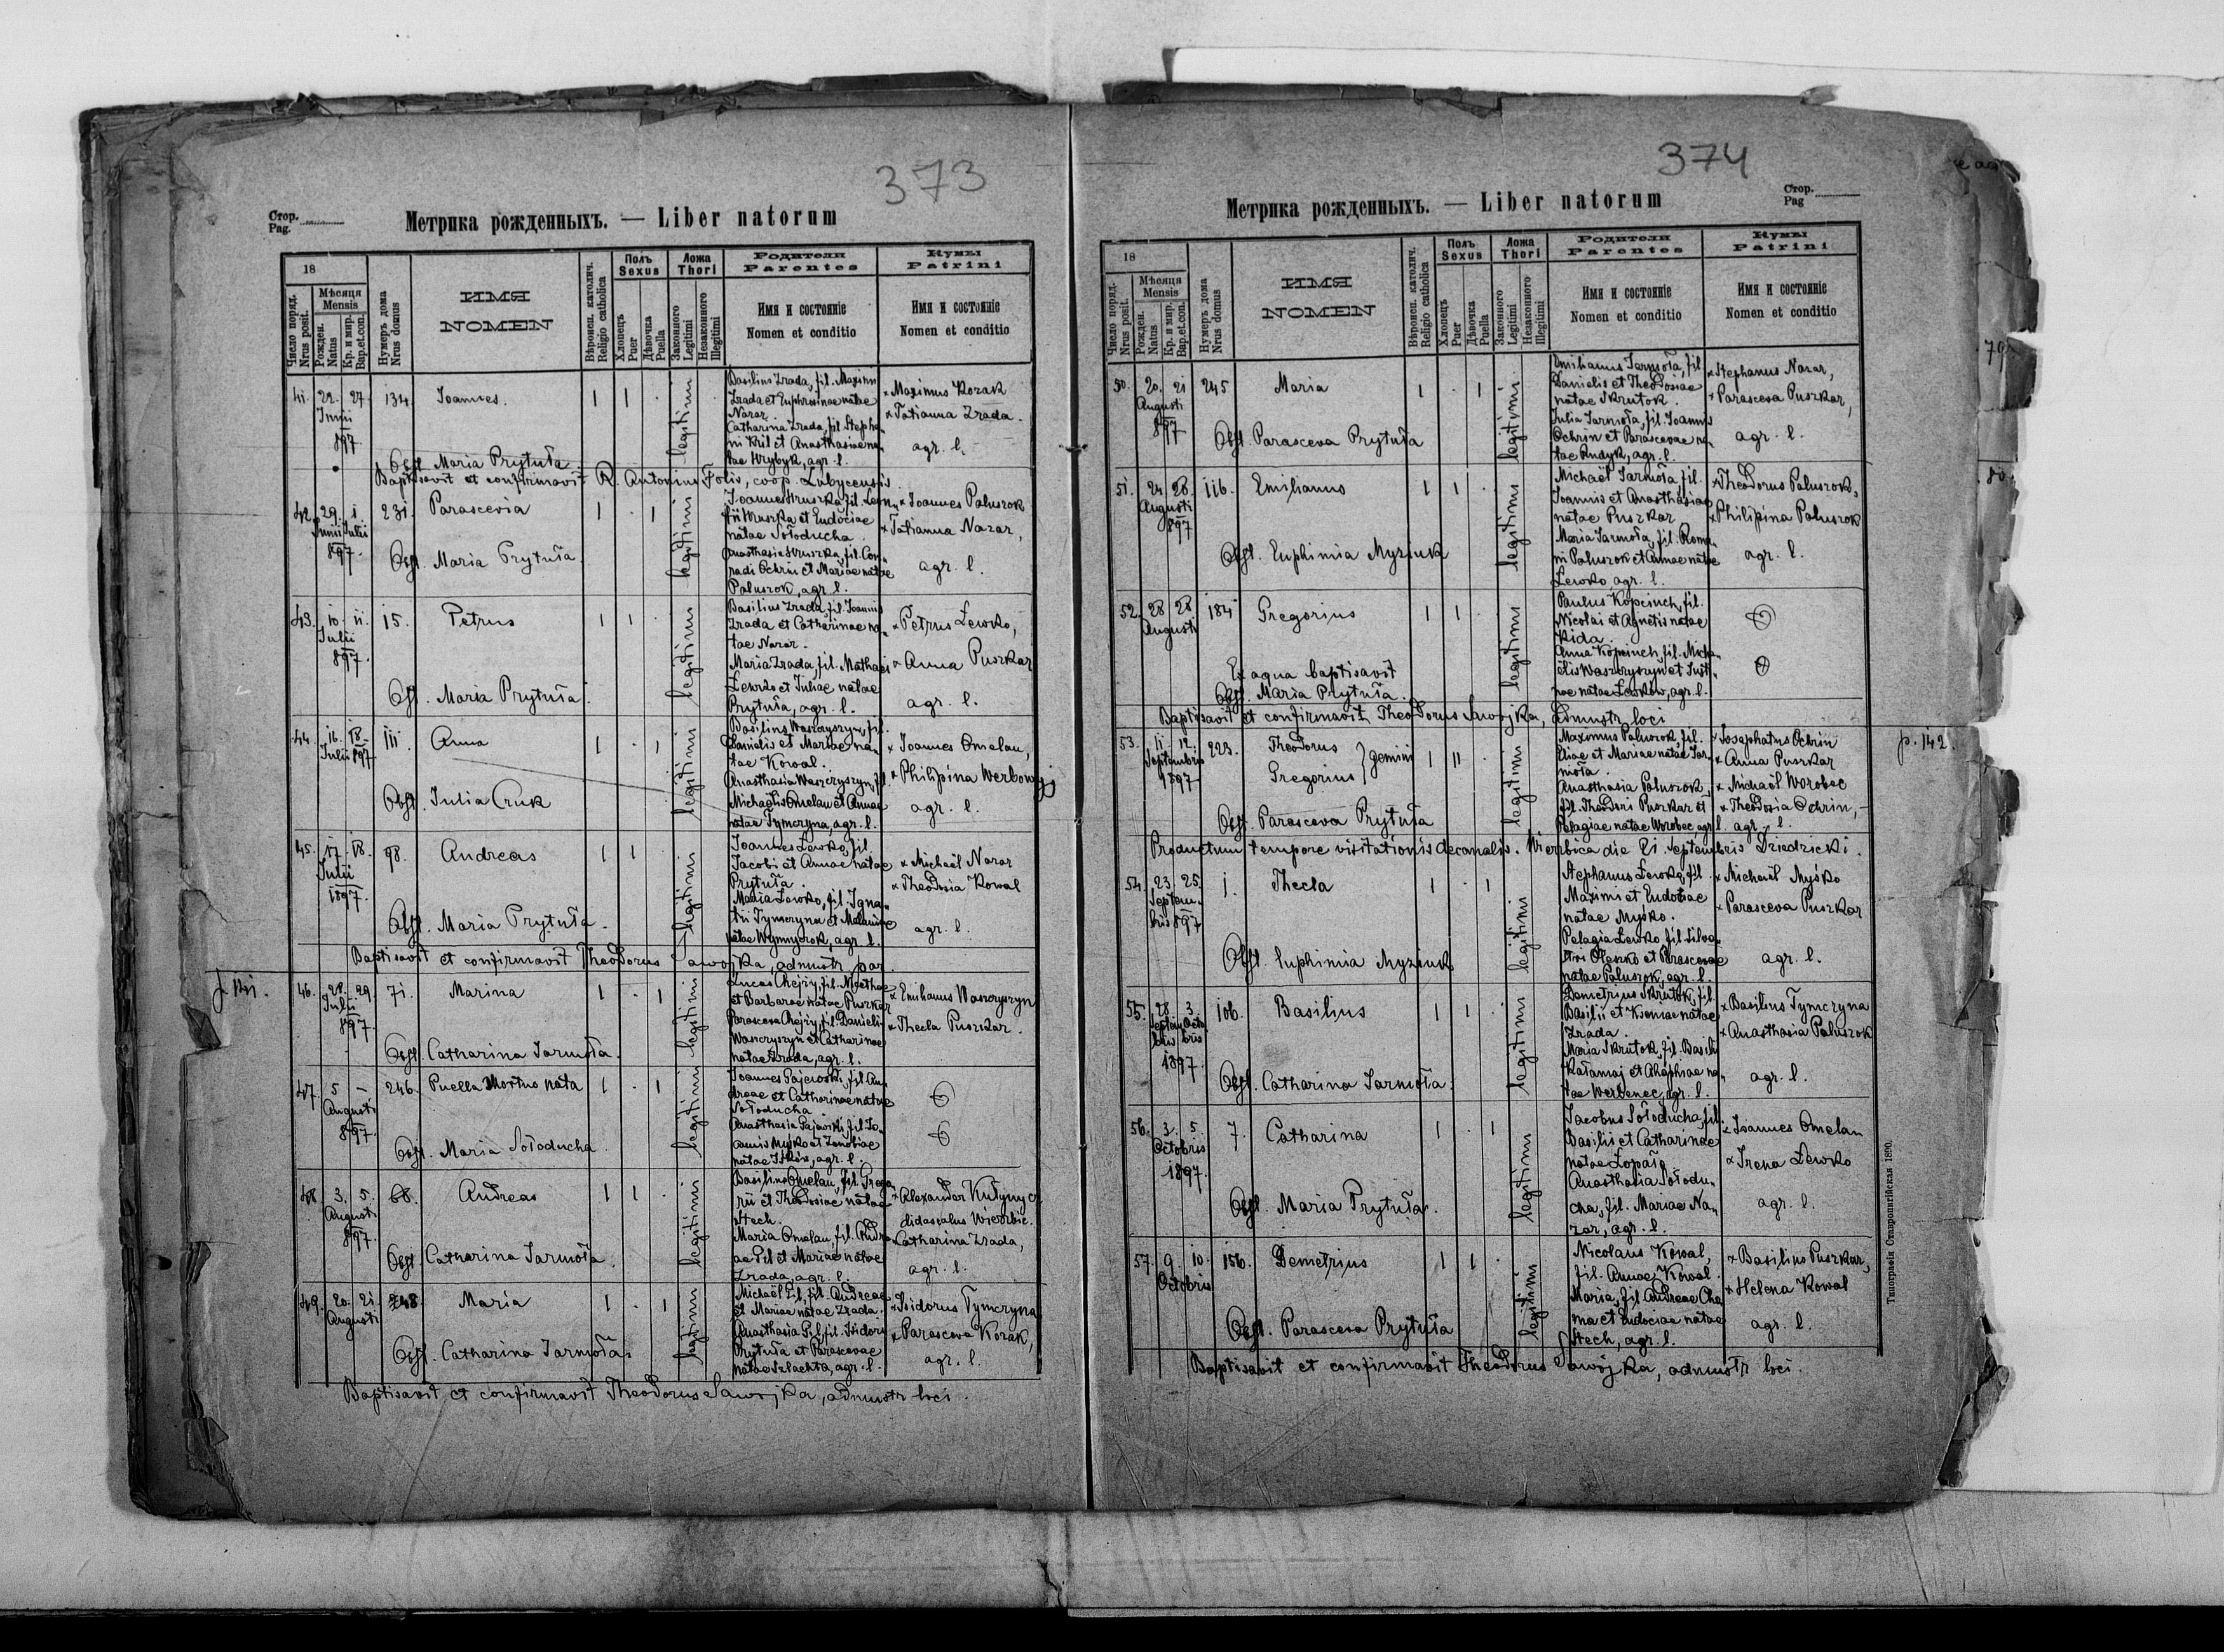 373
Стор.
Pag.
Метрика рожденныхъ. — Liber natorum
18
Число поряд.
Nrus posit.
Мѣсяця
Mensis
Рожден.
Natus
Кр. и мир.
Bap.et.con.
Нумеръ дома
Nrus domus
ИМЯ
NOMEN
Вѣроисп. католич.
Religio catholica
Полъ
Sexus
Хлопецъ
Puer
Дѣвочка
Puella
Ложа
Thori
Законного
Legitimi
Незаконного
Illegitimi
Родители
Parentes
Имя и состояніе
Nomen et conditio
Кумы
Patrini
Имя и состояніе
Nomen et conditio
41. 22. 27. 134 Ioannes. 1 1 . legitimi
Iunii
897
Basilius Zrada, fil. Maximi
Zrada et Euphrosinae natae
Nazar.
Catharina Zrada, fil. Stepha„
ni Kril et Anasthasiae na„
tae Hrybyk, agr. l.
× Maximus Kozak
× Tatianna Zrada.
agr. l.
Obst. Maria Prytuła
Baptisavit et confirmavit R. Antonius Folis, coop. Lubycensis.
42. 29. 1. 231. Parascevia 1 . 1 legitimi
Iunii Iulii
897.
Ioannes Hruszka, fil. Leon„
tii Hruszka et Eudociae
natae Sołoducha.
Anasthasia Hruszka, fil. Con„
radi Ochrin et Mariae natae
Paluszok, agr. l.
× Ioannes Paluszok
× Tatianna Nazar,
agr. l.
Obst. Maria Prytuła.
43. 10. 11. 15. Petrus 1 1 . legitimi
Iulii
897.
Basilius Zrada, fil. Ioannis
Zrada et Catharinae na„
tae Nazar.
Maria Zrada, fil. Mathaei
Lewko et Iuliae natae
Prytuła, agr. l.
× Petrus Lewko,
× Anna Puszkar
agr. l.
Obst. Maria Prytuła.
44. 16. 18. 111. Anna 1 . 1 legitimi
Iulii 897
Basilius Waszczyszyn, fil.
Danielis et Mariae na„
tae Kowal.
Anasthasia Waszczyszyn, fil.
Michaëlis Omelan et Annae
natae Tymczyna, agr. l.
× Ioannes Omelan,
× Philipina Werbowyj
agr. l.
Obst. Iulia Cruk
45. 17. 18. 98. Andreas 1 1 . legitimi
Iulii
1897.
Ioannes Lewko, fil.
Iacobi et Annae natae
Prytuła.
Maria Lewko, fil. Igna„
tii Tymczyna et Melaniae
natae Wymnyczok, agr. l.
× Michaël Nazar
× Theodosia Kowal
agr. l.
Obst. Maria Prytuła.
Baptisavit et confirmavit Theodorus Sawojka, admnstr par.
46. 28. 29. 71. Marina 1 . 1 legitimi
Iulii
897.
Lucas Chejzy, fil. Matthae
et Barbarae natae Puszkar
Parasceva Chejzy, fil. Danielis
Waszczyszyn et Catharinae
natae Zrada, agr. l.
× Emilianus Waszczyszyn
× Thecla Puszkar.
Obst. Catharina Iarmoła.
47. 5 — 246. Puella Mortuo nata 1 . 1 legitimi
Augusti
897.
Ioannes Gajewski, fil. An„
dreae et Catharinae natae
Sołoducha.
Anasthasia Gajewski, fil. Io„
annis Myśko et Zenobiae
natae Iśków, agr. l.
Obst. Maria Sołoducha.
48. 3. 5. 68. Andreas 1 1 . legitimi
Augusti
897.
Basilius Omelan, fil. Grego„
rii et Theodosiae natae
Stech.
Maria Omelan, fil. Andre„
ae Pil et Mariae natae
Zrada, agr. l.
× Alexander Kułynycz
didascalus Wierzbic.
Catharina Zrada,
agr. l.
Obst. Catharina Iarmoła.
49. 20. 21. 248. Maria 1 . 1 legitimi
Augusti
Michaël Pil, fil. Andreae
et Mariae natae Zrada.
Anasthasia Pil, fil. Isidori
Prytuła et Parascevae
natae Szlachta, agr. l.
× Isidorus Tymczyna
× Parasceva Kozak,
agr. l.
Obst. Catharina Iarmoła.
Baptisavit et confirmavit Theodorus Sawojka, admnstr loci.
374
Стор.
Pag
Метрика рожденныхъ. — Liber natorum
18
Число поряд.
Nrus posit.
Мѣсяця
Mensis
Рожден.
Natus
Кр. и мир.
Bap.et.con.
Нумеръ дома
Nrus domus
ИМЯ
NOMEN
Вѣроисп. католич.
Religio catholica
Полъ
Sexus
Хлопецъ
Puer
Дѣвочка
Puella
Ложа
Thori
Законного
Legitimi
Незаконного
Illegitimi
Родители
Parentes
Имя и состояніе
Nomen et conditio
Кумы
Patrini
Имя и состояніе
Nomen et conditio
50. 20. 21 245 Maria 1 . 1 legitimi
Augusti
897
Emilianus Iarmoła, fil.
Danielis et Theodosiae
natae Skrutok.
Iulia Iarmoła, fil. Ioannis
Ochrin et Parascevae na„
tae Rudyk, agr. l.
× Stephanus Nazar,
× Parasceva Puszkar,
agr. l.
Obst. Parasceva Prytuła
51. 24. 28. 116. Emilianus 1 1 . legitimi
Augusti
897
Michaël Iarmoła, fil.
Ioannis et Anasthasiae
natae Puszkar
Maria Iarmoła, fil. Roma„
ni Paluszok et Annae natae
Lewko agr. l.
× Theodorus Paluszok,
× Philipina Paluszok
agr. l.
Obst. Euphimia Myziuk
52. 28 28 184 Gregorius 1 1 . legitimi
Augusti
Paulus Kopciuch, fil.
Nicolai et Agnetis natae
Kida.
Anna Kopciuch, fil. Micha„
ëlis Waszczyszyn et Iusti„
nae natae Leśków, agr. l.
Ex aqua baptisavit
Obst. Maria Prytuła.
Baptisavit et confirmavit Theodorus Sawojka, admnstr loci
53. 11. 12. 223. Theodorus
Gregorius } gemini 1 11 . legitimi
Septembris
1897
Maximus Paluszok, fil.
Eliae et Mariae natae Iar„
moła.
Anasthasia Paluszok,
fil. Theodori Puszkar et
Pelagiae natae Worobec agr. l.
× Iosaphatus Ochrin
× Anna Puszkar
× Michaël Worobec
× Theodosia Ochrin,
agr. l.
p. 142.
Obst. Parasceva Prytuła
Productum tempore visitationis decanalis. Wierzbica die 21 Septembris Dziedzicki.
54. 23. 25. 1. Thecla 1 . 1 legitimi
Septem„
bris 897
Stephanus Lewko, fil.
Maximi et Eudociae
natae Myśko.
Pelagia Lewko, fil. Silve„
stri Olenko et Parascevae
natae Paluszok, agr. l.
× Michaël Myśko
× Parasceva Puszkar
agr. l.
Obst. Euphimia Myziuk
55. 28. 3. 106. Basilius 1 1 . legitimi
Septem Octo
bris bris
1897.
Demetrius Skrutok, fil.
Basilii et Kseniae natae
Zrada.
Maria Skrutok, fil. Basilii
Kałamaj et Ahaphiae na„
tae Werbenec, agr. l.
× Basilius Tymczyna
× Anasthasia Paluszok
agr. l.
Obst. Catharina Iarmoła.
56. 3. 5. 7. Catharina 1 . 1 legitimi
Octobris
1897.
Iacobus Sołoducha, fil.
Basilii et Catharinae
natae Łopata
Anasthasia Sołodu„
cha, fil. Mariae Na„
zar, agr. l.
× Ioannes Omelan
× Irena Lewko
agr. l.
Obst. Maria Prytuła.
57. 9. 10. 156. Demetrius 1 1 . legitimi
Octobris
Nicolaus Kowal,
fil. Annae Kowal.
Maria, fil. Andreae Cha
ma et Eudociae natae
Stech, agr. l.
× Basilius Puszkar,
× Helena Kowal
agr. l.
Obst. Parasceva Prytuła
Baptisavit et confirmavit Theodorus Sawojka, admnstr loci.
Типографія Ставропигійская 1890.
79
80